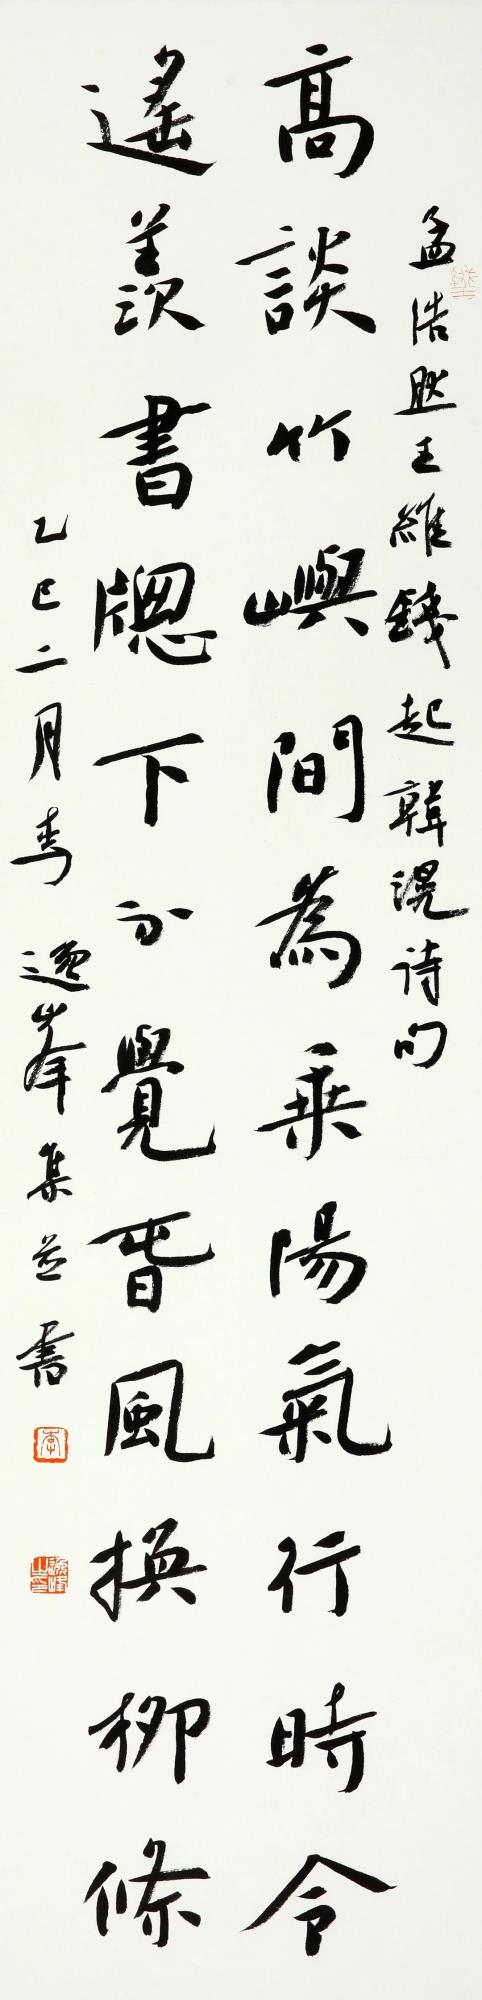 孟浩然王維錢起韓滉诗句
高談竹嶼間為乘陽氣行時令
遙羨書牕下不覺旾風換柳條
乙巳二月李逸峯集並書
李